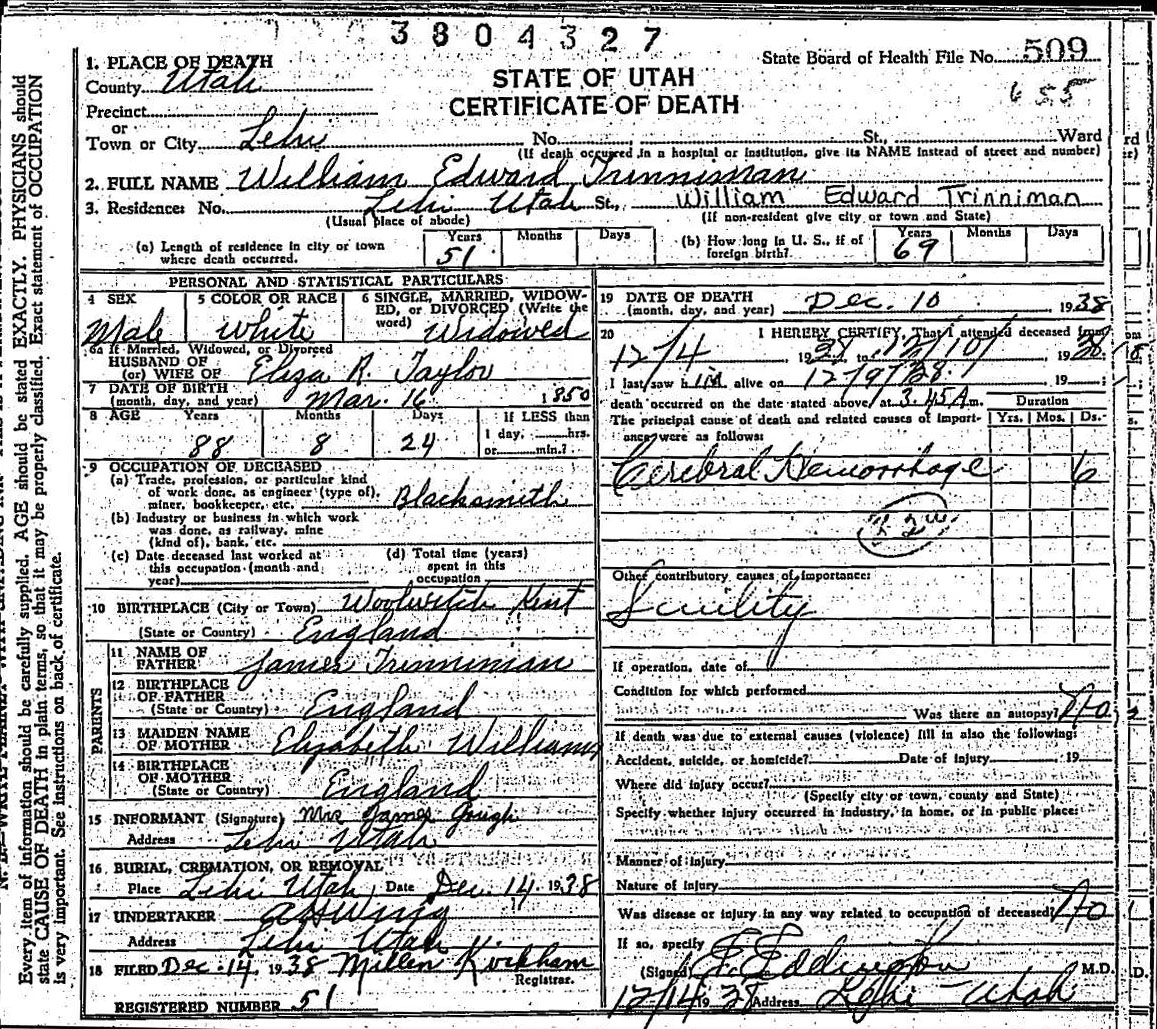 3804327
State Board of Health File No. 509
655
STATE OF UTAH
CERTIFICATE OF DEATH
1. PLACE OF DEATH
County Utah
Precinct
or
Town or City Lehi No. St., Ward
(If death occurred in a hospital or institution, give its NAME instead of street and number)
2. FULL NAME William Edward Trinniman
3. Residence: No. Lehi Utah St., William Edward Trinniman
(Usual place of abode) (If non-resident give city or town and State)
(a) Length of residence in city or town where death occurred. Years 51 Months Days
(b) How long in U. S., if of foreign birth? Years 69 Months Days
PERSONAL AND STATISTICAL PARTICULARS
4 SEX Male
5 COLOR OR RACE White
6 SINGLE, MARRIED, WIDOWED, or DIVORCED (Write the word) Widowed
6a If Married, Widowed, or Divorced
HUSBAND OF
(or) WIFE OF Eliza R. Taylor
7 DATE OF BIRTH
(month, day, and year) Mar. 16 1850
8 AGE Years 88 Months 8 Days 24 If LESS than
1 day, hrs.
or min.?
9 OCCUPATION OF DECEASED
(a) Trade, profession, or particular kind
of work done, as engineer (type of),
miner, bookkeeper, etc. Blacksmith
(b) Industry or business in which work
was done, as railway, mine
(kind of), bank, etc.
(c) Date deceased last worked at
this occupation (month and
year)
(d) Total time (years)
spent in this
occupation
10 BIRTHPLACE (City or Town) Woolwitch Kent
(State or Country) England
PARENTS
11 NAME OF
FATHER James Trinniman
12 BIRTHPLACE
OF FATHER
(State or Country) England
13 MAIDEN NAME
OF MOTHER Elizabeth Williams
14 BIRTHPLACE
OF MOTHER
(State or Country) England
15 INFORMANT (Signature) Mrs James Gough
Address Lehi Utah
16 BURIAL, CREMATION, OR REMOVAL
Place Lehi Utah Date Dec. 14, 1938
17 UNDERTAKER
Address Lehi Utah
18 FILED Dec. 14, 1938 Kirkham
Registrar.
REGISTERED NUMBER 51
19 DATE OF DEATH
(month, day, and year) Dec. 10 1938
20 I HEREBY CERTIFY, That I attended deceased from
12/4 1938, to 12/10/ 1938.
I last saw him alive on 12/9/38 19
death occurred on the date stated above, at 3.45A m.
The principal cause of death and related causes of importance were as follows:
Duration
Yrs. Mos. Ds.
Cerebral Hemorrhage 6
Other contributory causes of importance:
Senility
If operation, date of
Condition for which performed
Was there an autopsy? No
If death was due to external causes (violence) fill in also the following:
Accident, suicide, or homicide? Date of injury 19
Where did injury occur?
(Specify city or town, county and State)
Specify whether injury occurred in industry, in home, or in public place:
Manner of injury
Nature of injury
Was disease or injury in any way related to occupation of deceased? No
If so, specify
(Signed) Eddington M.D.
12/14 1938 Address Lehi Utah
Every item of information should be carefully supplied. AGE should be stated EXACTLY. PHYSICIANS should
state CAUSE OF DEATH in plain terms, so that it may be properly classified. Exact statement of OCCUPATION
is very important. See instructions on back of certificate.